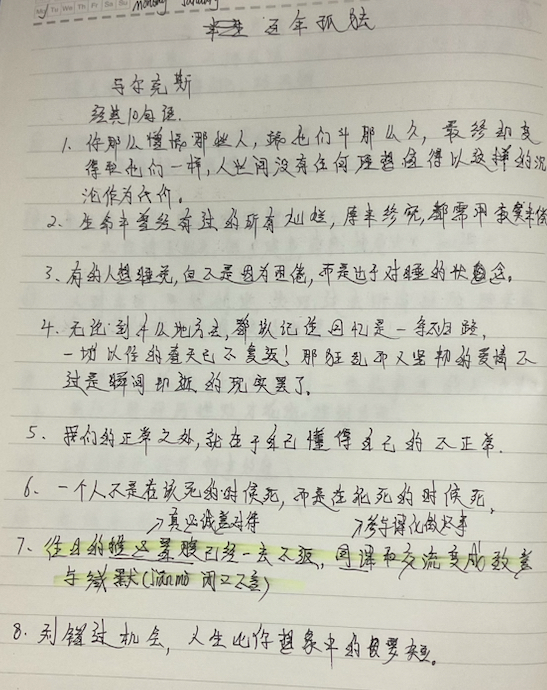 Mo Tu We Th Fr Sa Su Monday January
百年孤独
马尔克斯
经典10句语.
1. 你那么憎恨那些人,跟他们斗那么久,最终却变
得和他们一样,人世间没有任何理想值得以这样的沉
沦作为代价。
2、生命中曾经有过的所有灿烂,原来终究,都需用寂寞来偿
3、有的人想睡觉,但不是因为困倦,而是出于对睡的状念。
4、无论走到什么地方去,都该记住回忆是一条不归路,
一切以往的春天已不复返!那狂乱而又坚韧的爱情不
过是瞬间即逝的现实罢了。
5、我们的正常之处,就在于自己懂得自己的不正常.
6、一个人不是在该死的时候死,而是在能死的时候死。
↗真心诚意对待
7、往日的已经一去不返,因课而交流变成敌意
与缄默(jian mo 闭口不言)
8、别错过机会,人生比你想象中的要短。